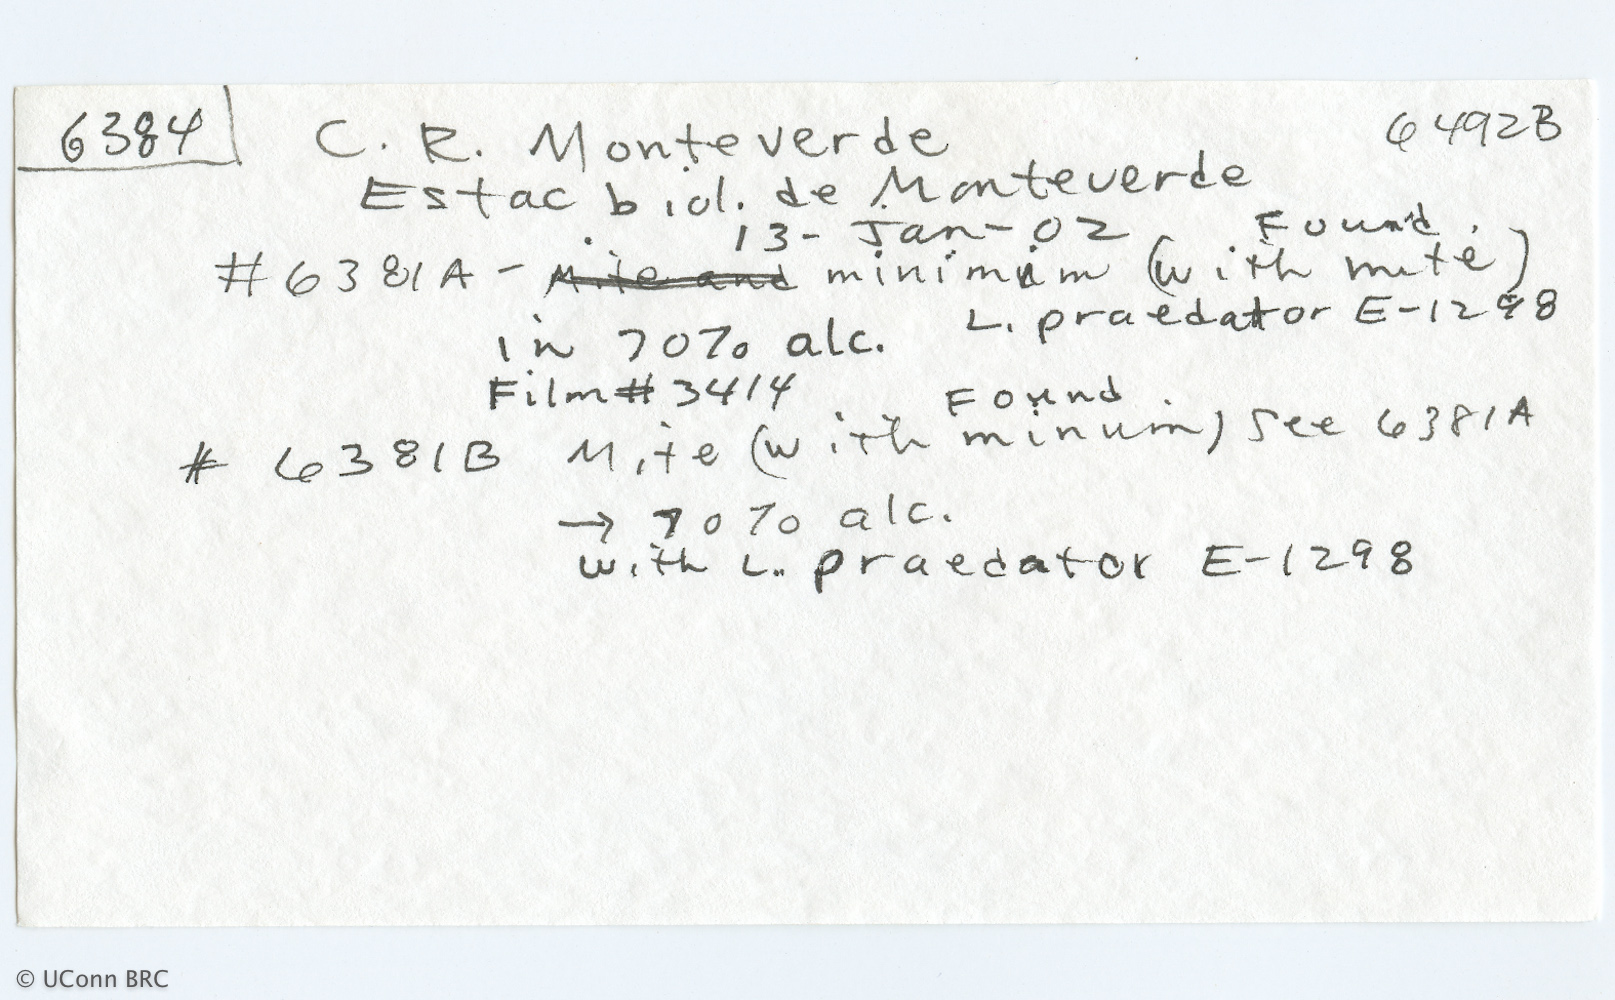 6384 C. R. Monteverde 6492B
Estac biol. de Monteverde
13-Jan-02 Found
#6381A - Mite and minimim (with mite)
in 70% alc. L. praedator E-1298
Film# 3414 Found
# 6381B Mite (with minum) See 6381A
→ 70% alc.
with L. praedator E-1298
© UConn BRC